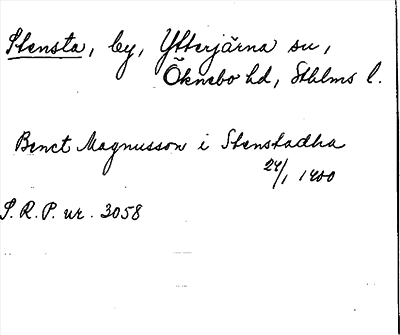 Stensta, by, Ytterjärna sn,
Öknebo hd, Sthlms l.
Benct Magnusson i Stenstadha
24/1 1400
S.R.P. nr. 3058